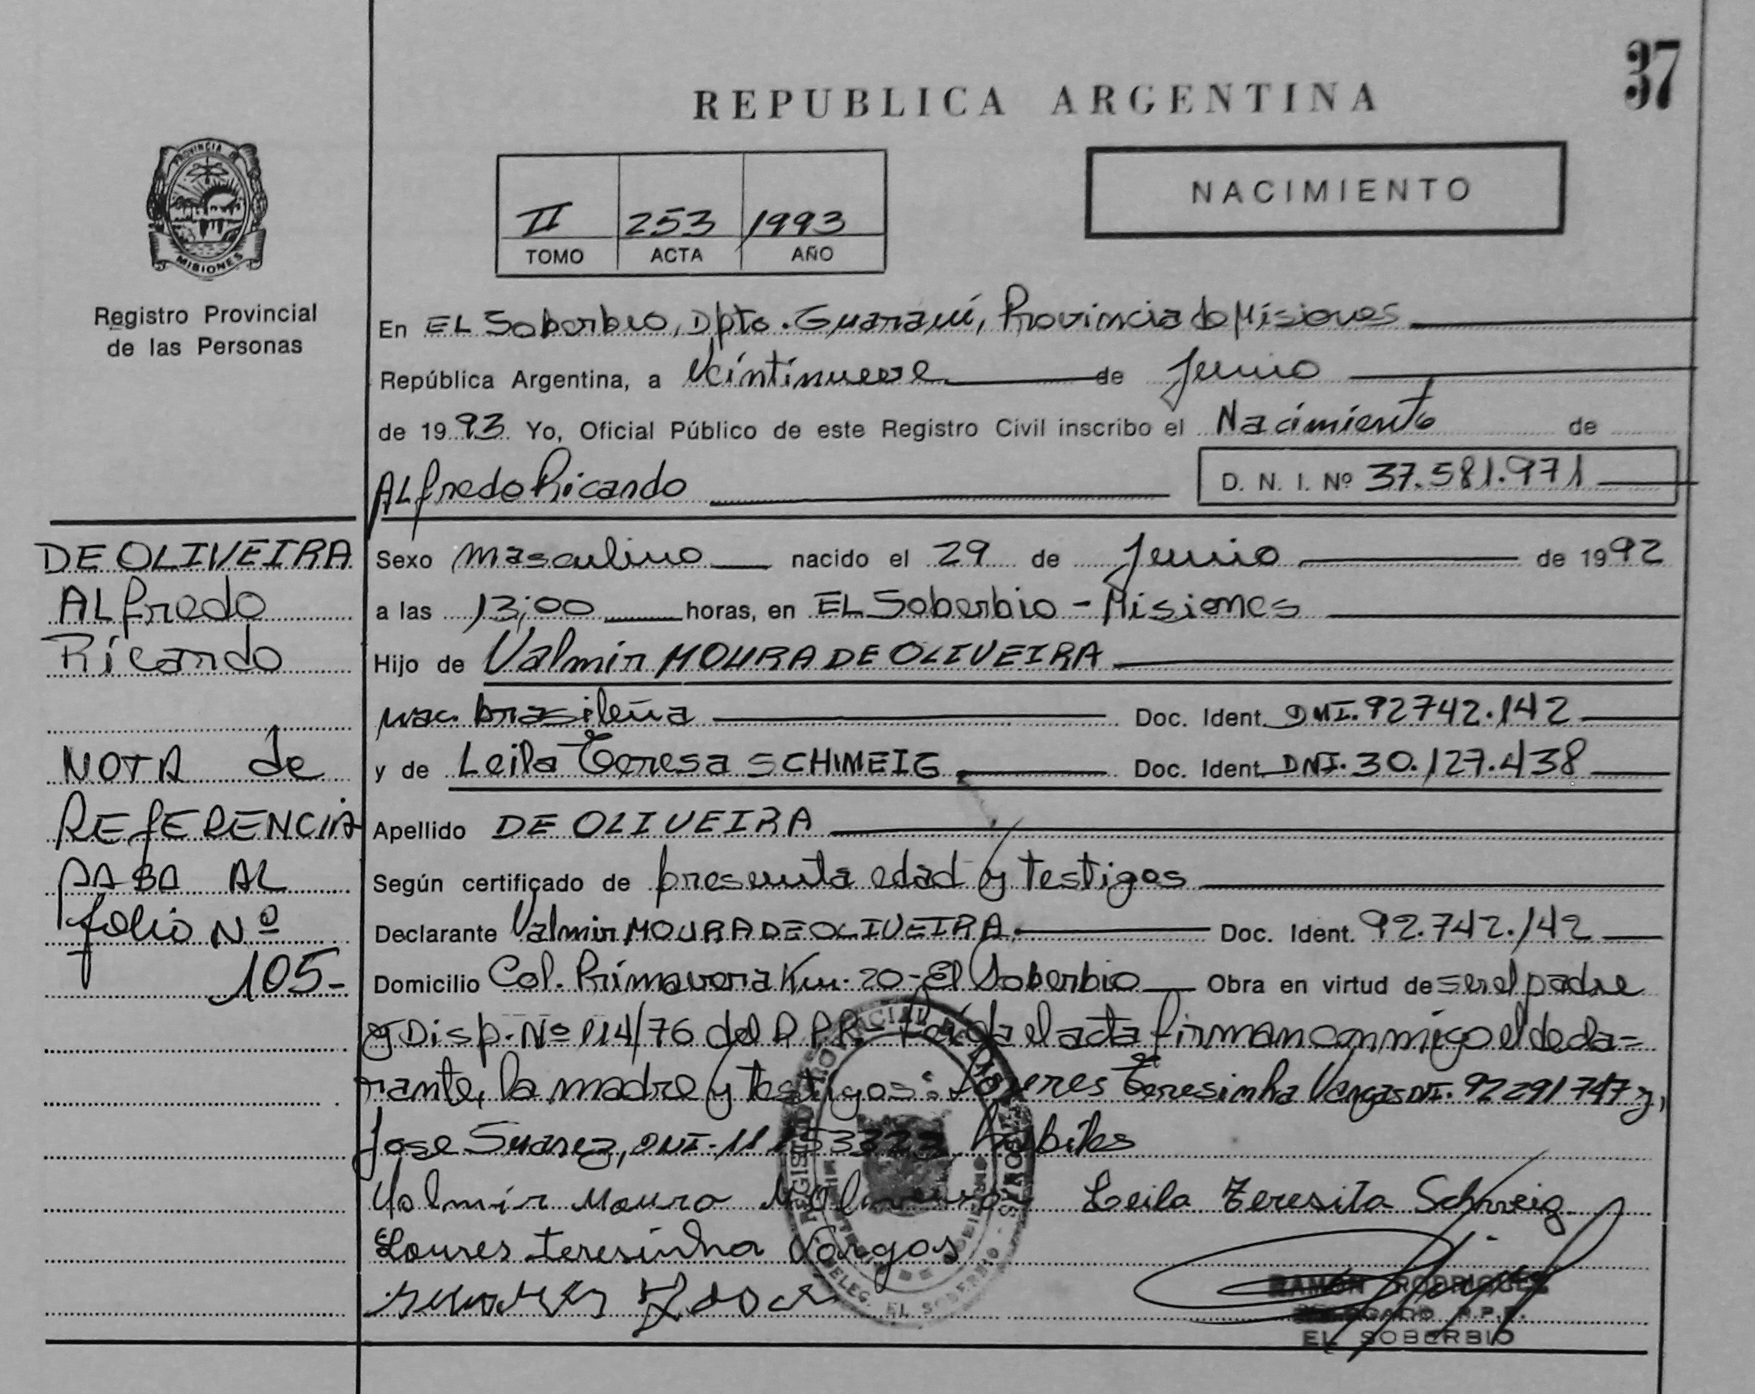 37
REPUBLICA ARGENTINA
NACIMIENTO
II 253 1993
TOMO ACTA AÑO
PROVINCIA DE
MISIONES
Registro Provincial
de las Personas
En EL Soberbio, Dpto. Guaraní, Provincia de Misiones
República Argentina, a Veintinueve de Junio
de 1993 Yo, Oficial Público de este Registro Civil inscribo el Nacimiento de
ALfredo Ricardo D. N. I. Nº 37.581.971
DE OLIVEIRA
ALfredo
Ricardo
NOTA de
REfERENCIA
PASA AL
folio Nº
105-
Sexo Masculino nacido el 29 de Junio de 1992
a las 13;00 horas, en EL Soberbio - Misiones
Hijo de Valmir MOURA DE OLIVEIRA
nac. brasileña Doc. Ident. DNI. 92742.142
y de Leila Teresa SCHIMEIG Doc. Ident. DNI. 30.127.438
Apellido DE OLIVEIRA
Según certificado de presunta edad y testigos
Declarante Valmir MOURA DE OLIVEIRA. Doc. Ident. 92.742.142
Domicilio Col. Primavera Km. 20 - El Soberbio Obra en virtud de ser el padre
y Disp. Nº 114/76 del R.P.P.- Leída el acta firman conmigo el decla=
rante, la madre y testigos: Teresinha Vargas DNI. 92291747 y,
Jose Suarez, DNI. 11 53323
Valmir Moura Leila Teresita Schweig
Loures teresinha Vargas
RAMON RODRIGUES
DELEGADO R.P.P.
EL SOBERBIO